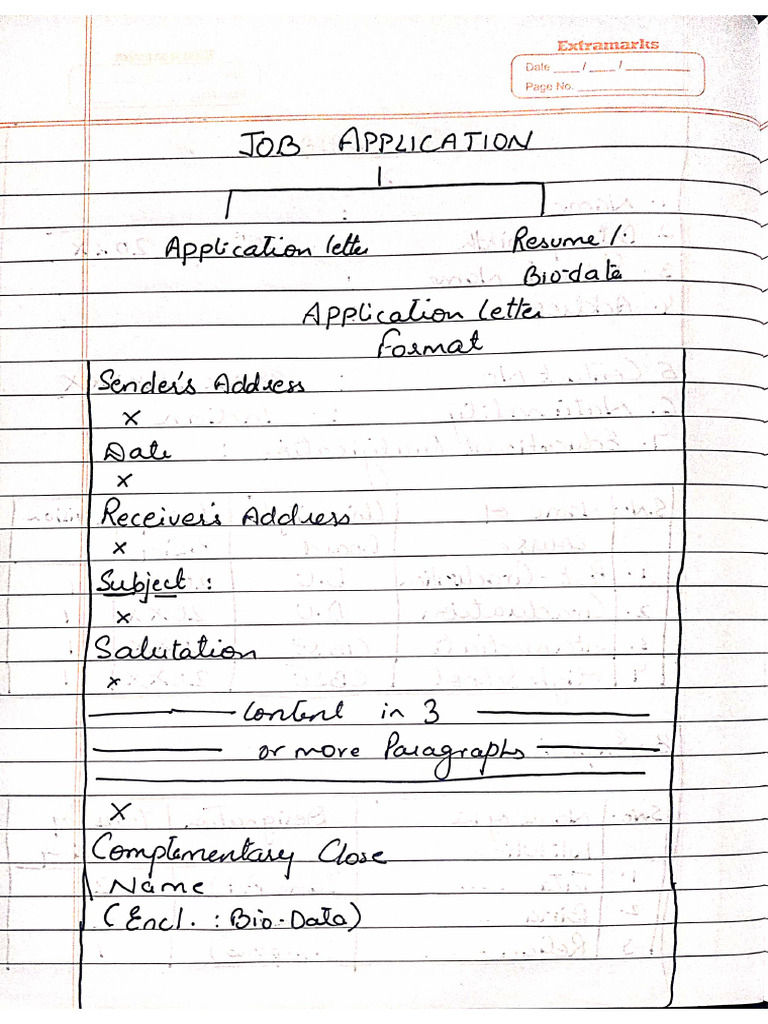 Extramarks
Date ___/___/______
Page No. __________
JOB APPLICATION
Application letter Resume /
Bio-data
Application Letter
Format
Sender's Address
x
Date
x
Receiver's Address
x
Subject :
x
Salutation
x
Content in 3
or more Paragraphs
x
Complementary Close
Name
(Encl. : Bio-Data)